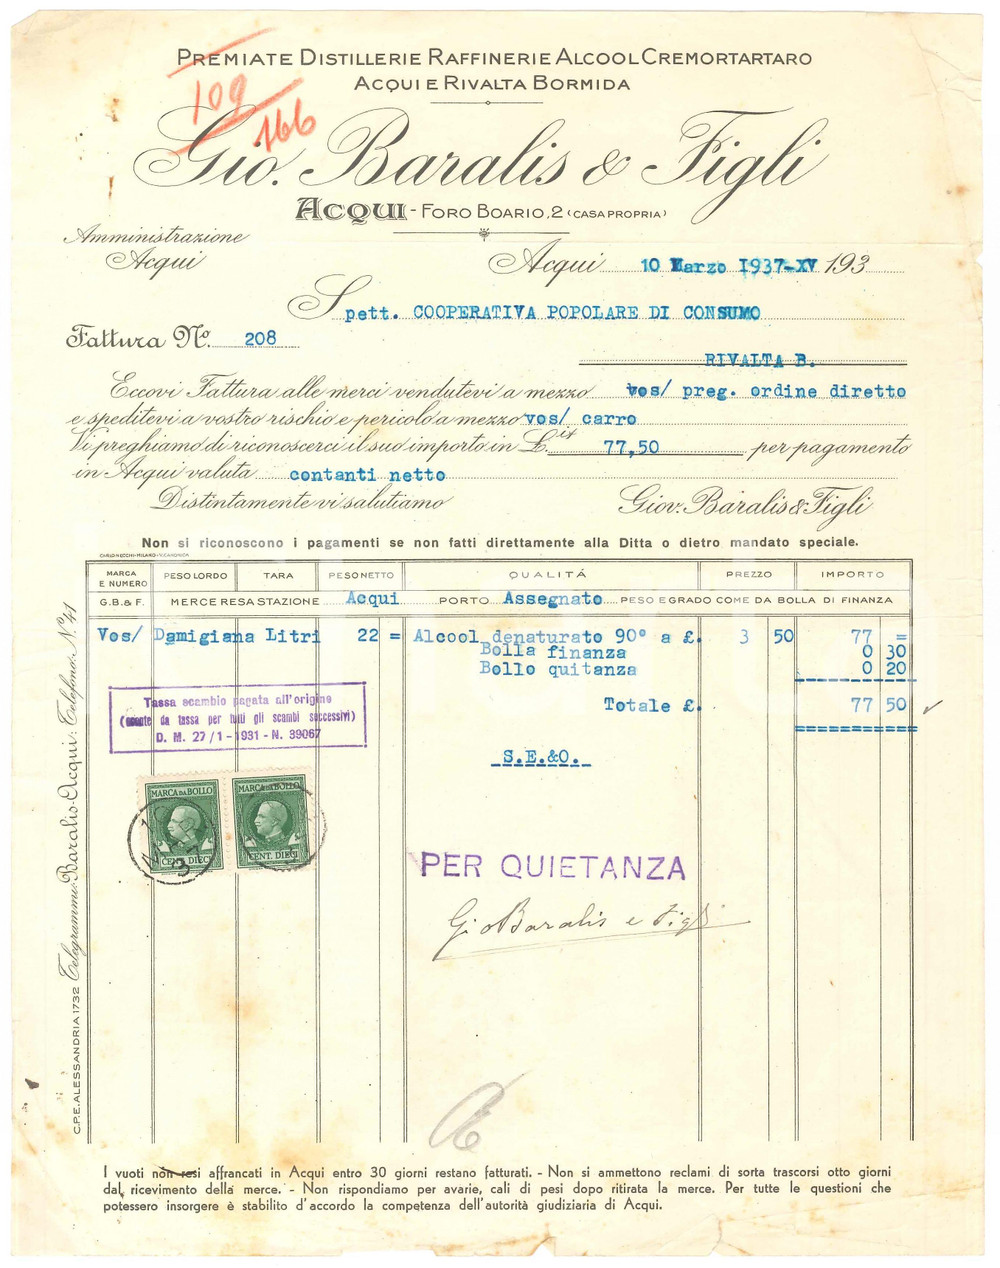 PREMIATE DISTILLERIE RAFFINERIE ALCOOL CREMORTARTARO
ACQUI E RIVALTA BORMIDA
109
166
Gio. Baralis & Figli
ACQUI - FORO BOARIO, 2 (CASA PROPRIA)
Amministrazione
Acqui
Acqui 10 Marzo 1937-XV 193
Spett. COOPERATIVA POPOLARE DI CONSUMO
Fattura No. 208
RIVALTA B.
Eccovi Fattura alle merci vendutevi a mezzo vos/ preg. ordine diretto
e speditevi a vostro rischio e pericolo a mezzo vos/ carro
Vi preghiamo di riconoscerci il suo importo in Lit 77,50 per pagamento
in Acqui valuta contanti netto
Distintamente vi salutiamo Giov. Baralis & Figli
Non si riconoscono i pagamenti se non fatti direttamente alla Ditta o dietro mandato speciale.
CARLO NECCHI-MILANO-V. CANONICA
MARCA E NUMERO PESO LORDO TARA PESO NETTO QUALITÁ PREZZO IMPORTO
G.B.& F. MERCE RESA STAZIONE Acqui PORTO Assegnato PESO E GRADO COME DA BOLLA DI FINANZA
Vos/ Damigiana Litri 22 = Alcool denaturato 90° a £. 3 50 77 =
Bolla finanza 0 30
Bollo quitanza 0 20
Totale £. 77 50
Tassa scambio pagata all'origine
(esente da tassa per tutti gli scambi successivi)
D. M. 27/1-1931 - N. 39067
S.E.&O.
MARCA DA BOLLO MARCA DA BOLLO
CENT. DIECI CENT. DIECI
PER QUIETANZA
Gio Baralis e Figli
C.P.E. ALESSANDRIA 1732 Telegrammi: Baralis-Acqui: Telefono: No. 41
I vuoti non resi affrancati in Acqui entro 30 giorni restano fatturati. - Non si ammettono reclami di sorta trascorsi otto giorni
dal ricevimento della merce. - Non rispondiamo per avarie, cali di pesi dopo ritirata la merce. Per tutte le questioni che
potessero insorgere è stabilito d'accordo la competenza dell'autorità giudiziaria di Acqui.